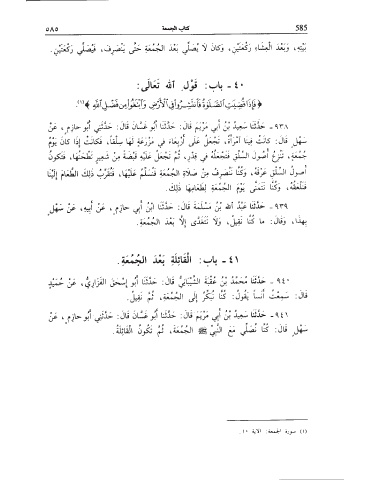 ٥٨٥ كتاب الجمعة 585
بَيْتِهِ، وَبَعْدَ الْعِشَاءِ رَكْعَتَيْنِ، وَكَانَ لَا يُصَلِّي بَعْدَ الْجُمُعَةِ حَتَّى يَنْصَرِفَ، فَيُصَلِّي رَكْعَتَيْنِ.
٤٠ - باب: قَوْلِ اللهِ تَعَالَى:
﴿فَإِذَا قُضِيَتِ الصَّلَوٰةُ فَانتَشِرُوا فِي الْأَرْضِ وَابْتَغُوا مِن فَضْلِ اللَّهِ﴾(١).
٩٣٨ - حَدَّثَنَا سَعِيدُ بْنُ أَبِي مَرْيَمَ قَالَ: حَدَّثَنَا أَبُو غَسَّانَ قَالَ: حَدَّثَنِي أَبُو حَازِمٍ، عَنْ
سَهْلٍ قَالَ: كَانَتْ فِينَا امْرَأَةٌ، تَجْعَلُ عَلَى أَرْبِعَاءَ فِي مَزْرَعَةٍ لَهَا سِلْقاً، فَكَانَتْ إِذَا كَانَ يَوْمُ
جُمُعَةٍ، تَنْزِعُ أُصُولَ السِّلْقِ فَتَجْعَلُهُ فِي قِدْرٍ، ثُمَّ تَجْعَلُ عَلَيْهِ قَبْضَةً مِنْ شَعِيرٍ تَطْحَنُهَا، فَتَكُونُ
أُصُولُ السِّلْقِ عَرْقَهُ، وَكُنَّا نَنْصَرِفُ مِنْ صَلَاةِ الْجُمُعَةِ فَنُسَلِّمُ عَلَيْهَا، فَتُقَرِّبُ ذٰلِكَ الطَّعَامَ إِلَيْنَا
فَنَلْعَقُهُ، وَكُنَّا نَتَمَنَّى يَوْمَ الْجُمُعَةِ لِطَعَامِهَا ذٰلِكَ.
٩٣٩ - حَدَّثَنَا عَبْدُ اللهِ بْنُ مَسْلَمَةَ قَالَ: حَدَّثَنَا ابْنُ أَبِي حَازِمٍ، عَنْ أَبِيهِ، عَنْ سَهْلٍ
بِهٰذَا، وَقَالَ: مَا كُنَّا نَقِيلُ، وَلَا نَتَغَدَّى إِلَّا بَعْدَ الْجُمُعَةِ.
٤١ - باب: الْقَائِلَةِ بَعْدَ الْجُمُعَةِ.
٩٤٠ - حَدَّثَنَا مُحَمَّدُ بْنُ عُقْبَةَ الشَّيْبَانِيُّ قَالَ: حَدَّثَنَا أَبُو إِسْحٰقَ الْفَزَارِيُّ، عَنْ حُمَيْدٍ
قَالَ: سَمِعْتُ أَنَساً يَقُولُ: كُنَّا نُبَكِّرُ إِلَى الْجُمُعَةِ، ثُمَّ نَقِيلُ.
٩٤١ - حَدَّثَنَا سَعِيدُ بْنُ أَبِي مَرْيَمَ قَالَ: حَدَّثَنَا أَبُو غَسَّانَ قَالَ: حَدَّثَنِي أَبُو حَازِمٍ، عَنْ
سَهْلٍ قَالَ: كُنَّا نُصَلِّي مَعَ النَّبِيِّ ﷺ الْجُمُعَةَ، ثُمَّ تَكُونُ الْقَائِلَةُ.
(١) سورة الجمعة: الآية ١٠